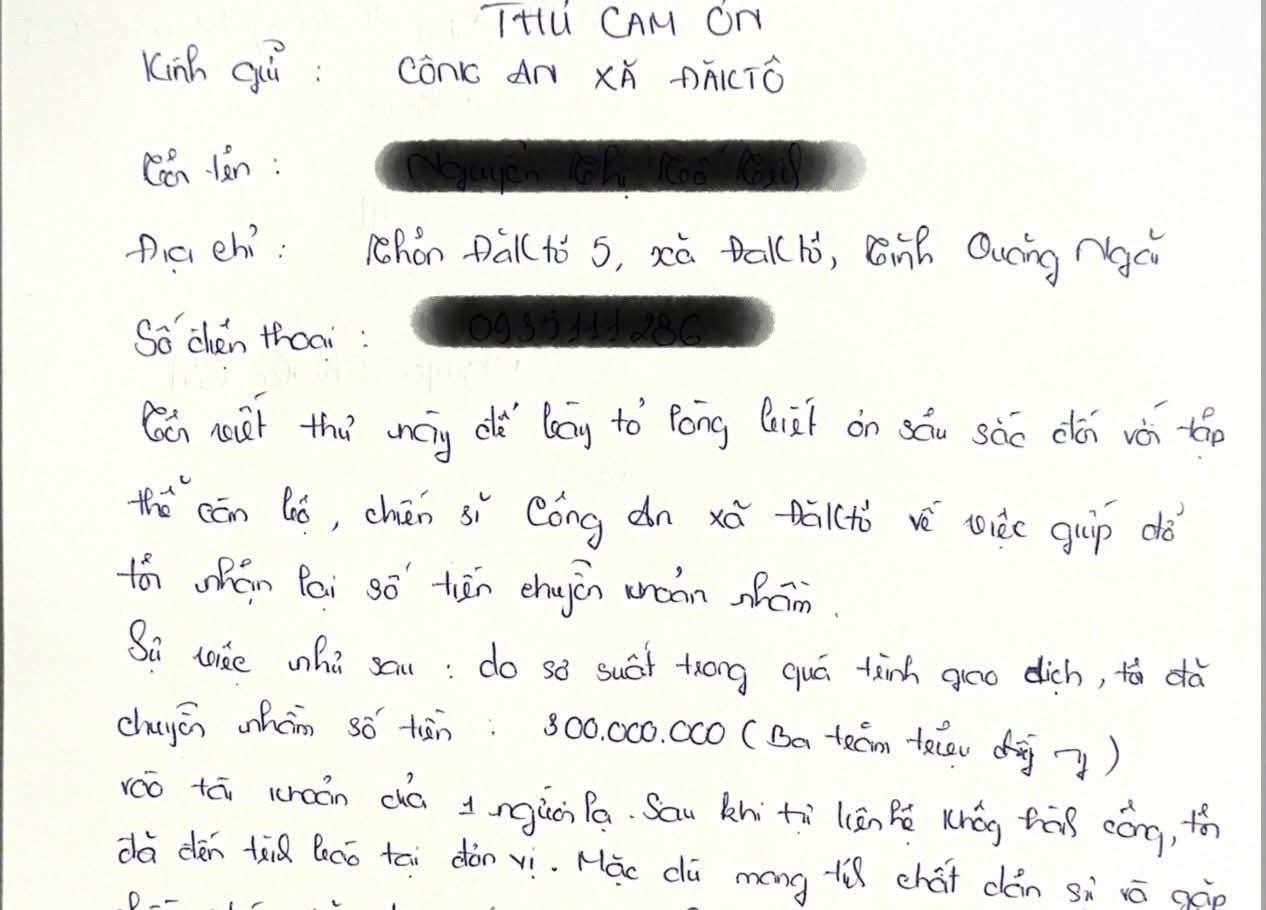 THƯ CẢM ƠN
Kính gửi : CÔNG AN XÃ ĐĂKTÔ
Tôi tên :
Địa chỉ : Thôn ĐăkTô 5, xã ĐăkTô, tỉnh Quảng Ngãi
Số điện thoại :
Tôi viết thư này để bày tỏ lòng biết ơn sâu sắc đối với tập
thể cán bộ, chiến sĩ Công An xã ĐăkTô về việc giúp đỡ
tôi nhận lại số tiền chuyển khoản nhầm.
Sự việc như sau : do sơ suất trong quá trình giao dịch, tôi đã
chuyển nhầm số tiền : 300.000.000 (Ba trăm triệu đồng
vào tài khoản của 1 người lạ. Sau khi tự liên hệ không thành công, tôi
đã đến trình báo tại đơn vị. Mặc dù mang tính chất dân sự và gặp